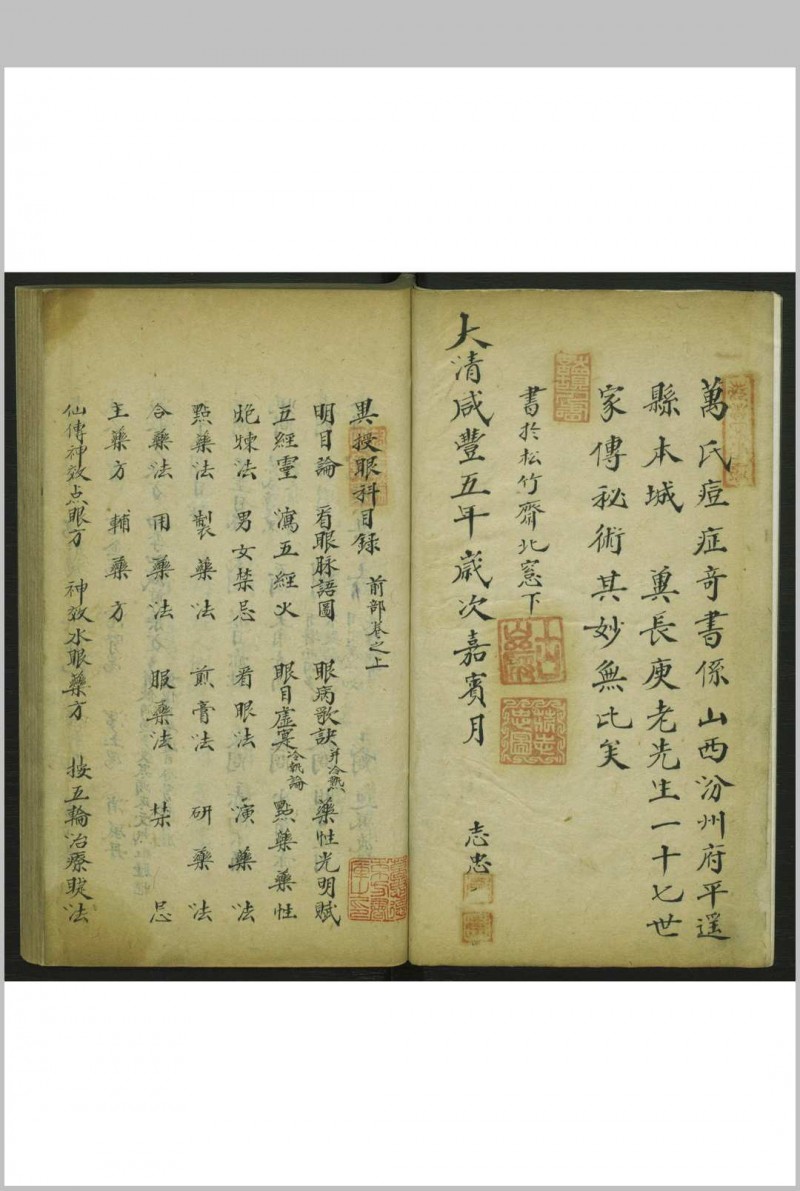 萬氏痘症奇書係山西汾州府平遥
縣本城 兾長庚老先生一十七世
家傳秘術其妙無比矣
書於松竹齋北窓下
大清咸豐五年歲次嘉賓月 志忠
異授眼科目録 前部卷之上
明目論 看眼脉語圖 眼病歌訣并冷熱 藥性光明賦
五經靈 瀉五經火 眼目虛寔冷熱論 點藥藥性
炮煉法 男女禁忌 看眼法 演藥法
點藥法 製藥法 煎膏法 研藥法
合藥法 用藥法 服藥法 禁忌
主藥方 輔藥方
仙傳神效点眼方 神效水眼藥方 按五輪治療眼法